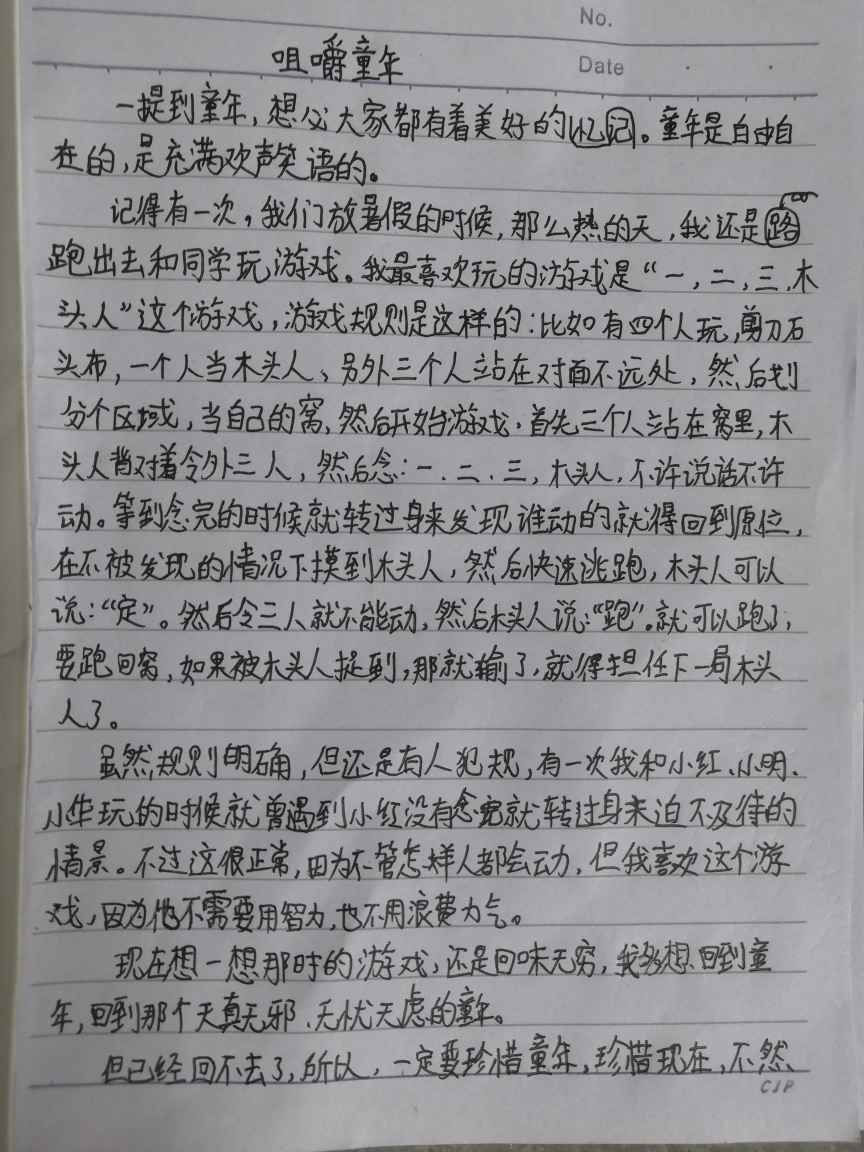 No.
Date
咀嚼童年
一提到童年，想必大家都有着美好的忆记。童年是自由自
在的，是充满欢声笑语的。
记得有一次，我们放暑假的时候，那么热的天，我还是路
跑出去和同学玩游戏。我最喜欢玩的游戏是“一，二，三，木
头人”这个游戏，游戏规则是这样的：比如有四个人玩，剪刀石
头布，一个人当木头人、另外三个人站在对面不远处，然后划
分个区域，当自己的窝，然后开始游戏．首先三个人站在窝里，木
头人背对着令外三人，然后念：一．二．三，木头人，不许说话不许
动。等到念完的时候就转过身来发现谁动的就得回到原位，
在不被发现的情况下摸到木头人，然后快速逃跑，木头人可以
说：“定”。然后令三人就不能动，然后木头人说：“跑”。就可以跑了，
要跑回窝，如果被木头人捉到，那就输了，就得担任下一局木头
人了。
虽然规则明确，但还是有人犯规，有一次我和小红、小明、
小华玩的时候就曾遇到小红没有念完就转过身来迫不及待的
情景。不过这很正常，因为不管怎样人都会动，但我喜欢这个游
戏，因为他不需要用智力，也不用浪费力气。
现在想一想那时的游戏，还是回味无穷，我多想回到童
年，回到那个天真无邪、无忧无虑的童年。
但已经回不去了，所以，一定要珍惜童年，珍惜现在，不然、
CJP